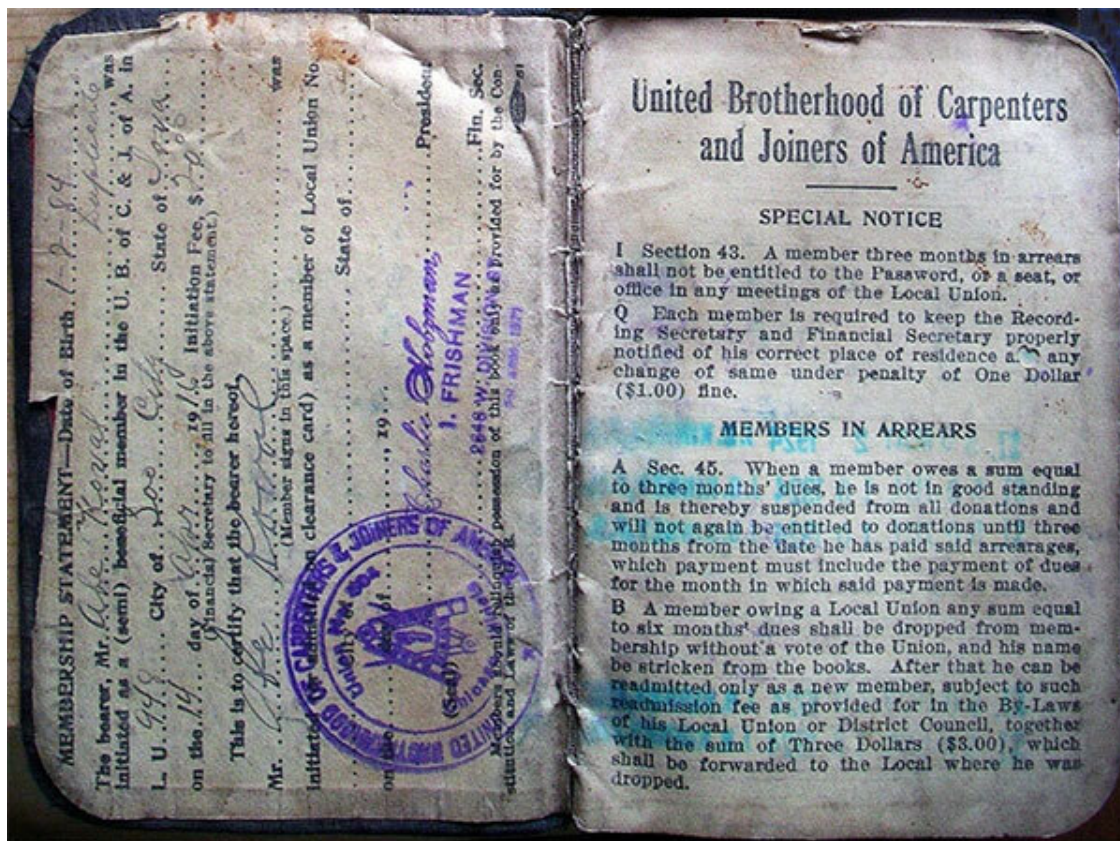 MEMBERSHIP STATEMENT—Date of Birth 1-8-84
The bearer, Mr. Abe Koval was
initiated as a (semi) beneficial member in the U. B. of C. & J. of A. in
L. U. 948 City of Soo City State of
on the 14 day of Apr 191 Initiation Fee, $
(Financial Secretary to fill in the above statement.)
This is to certify that the bearer hereof,
Mr. Abe Koval was
(Member signs in this space.)
initiated clearance card) as a member of Local Union No.
State of
on the day of 19
Charlie President
I. FRISHMAN Fin. Sec.
2648 W. DIVISION ST
(Seal)
Members possession of this book only as Provided for by the Con-
stitution and Laws of the U. B.
UNITED BROTHERHOOD OF CARPENTERS & JOINERS OF AMERICA
United Brotherhood of Carpenters
and Joiners of America
SPECIAL NOTICE
I Section 43. A member three months in arrears
shall not be entitled to the Password, or a seat, or
office in any meetings of the Local Union.
Q Each member is required to keep the Record-
ing Secretary and Financial Secretary properly
notified of his correct place of residence any
change of same under penalty of One Dollar
($1.00) fine.
MEMBERS IN ARREARS
A Sec. 45. When a member owes a sum equal
to three months' dues, he is not in good standing
and is thereby suspended from all donations and
will not again be entitled to donations until three
months from the date he has paid said arrearages,
which payment must include the payment of dues
for the month in which said payment is made.
B A member owing a Local Union any sum equal
to six months' dues shall be dropped from mem-
bership without a vote of the Union, and his name
be stricken from the books. After that he can be
readmitted only as a new member, subject to such
readmission fee as provided for in the By-Laws
of his Local Union or District Council, together
with the sum of Three Dollars ($3.00), which
shall be forwarded to the Local where he was
dropped.